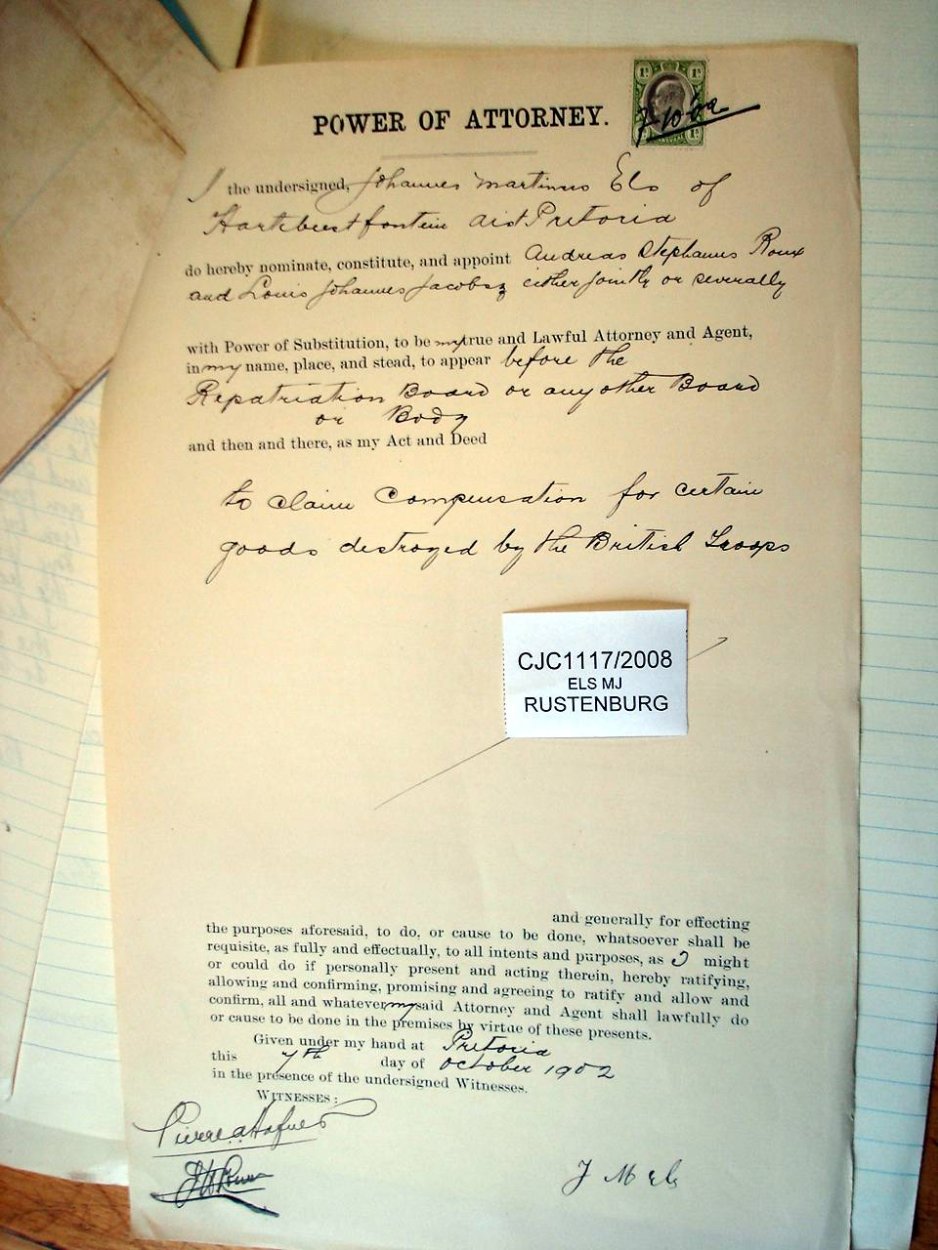 POWER OF ATTORNEY.
1d 1d
7-10-02
I the undersigned, Johannes Martinus Els of
Hartebeestfontein dist Pretoria
do hereby nominate, constitute, and appoint Andreas Stephanus Roux
and Louis Johannes Jacobsz either jointly or severally
with Power of Substitution, to be my true and Lawful Attorney and Agent,
in my name, place, and stead, to appear before the
Repatriation Board or any other Board
or Body
and then and there, as my Act and Deed
to claim compensation for certain
goods destroyed by the British Troops
CJC1117/2008
ELS MJ
RUSTENBURG
and generally for effecting
the purposes aforesaid, to do, or cause to be done, whatsoever shall be
requisite, as fully and effectually, to all intents and purposes, as I might
or could do if personally present and acting therein, hereby ratifying,
allowing and confirming, promising and agreeing to ratify and allow and
confirm, all and whatever my said Attorney and Agent shall lawfully do
or cause to be done in the premises by virtue of these presents.
Given under my hand at Pretoria
this 7th day of October 1902
in the presence of the undersigned Witnesses.
WITNESSES:
J M Els